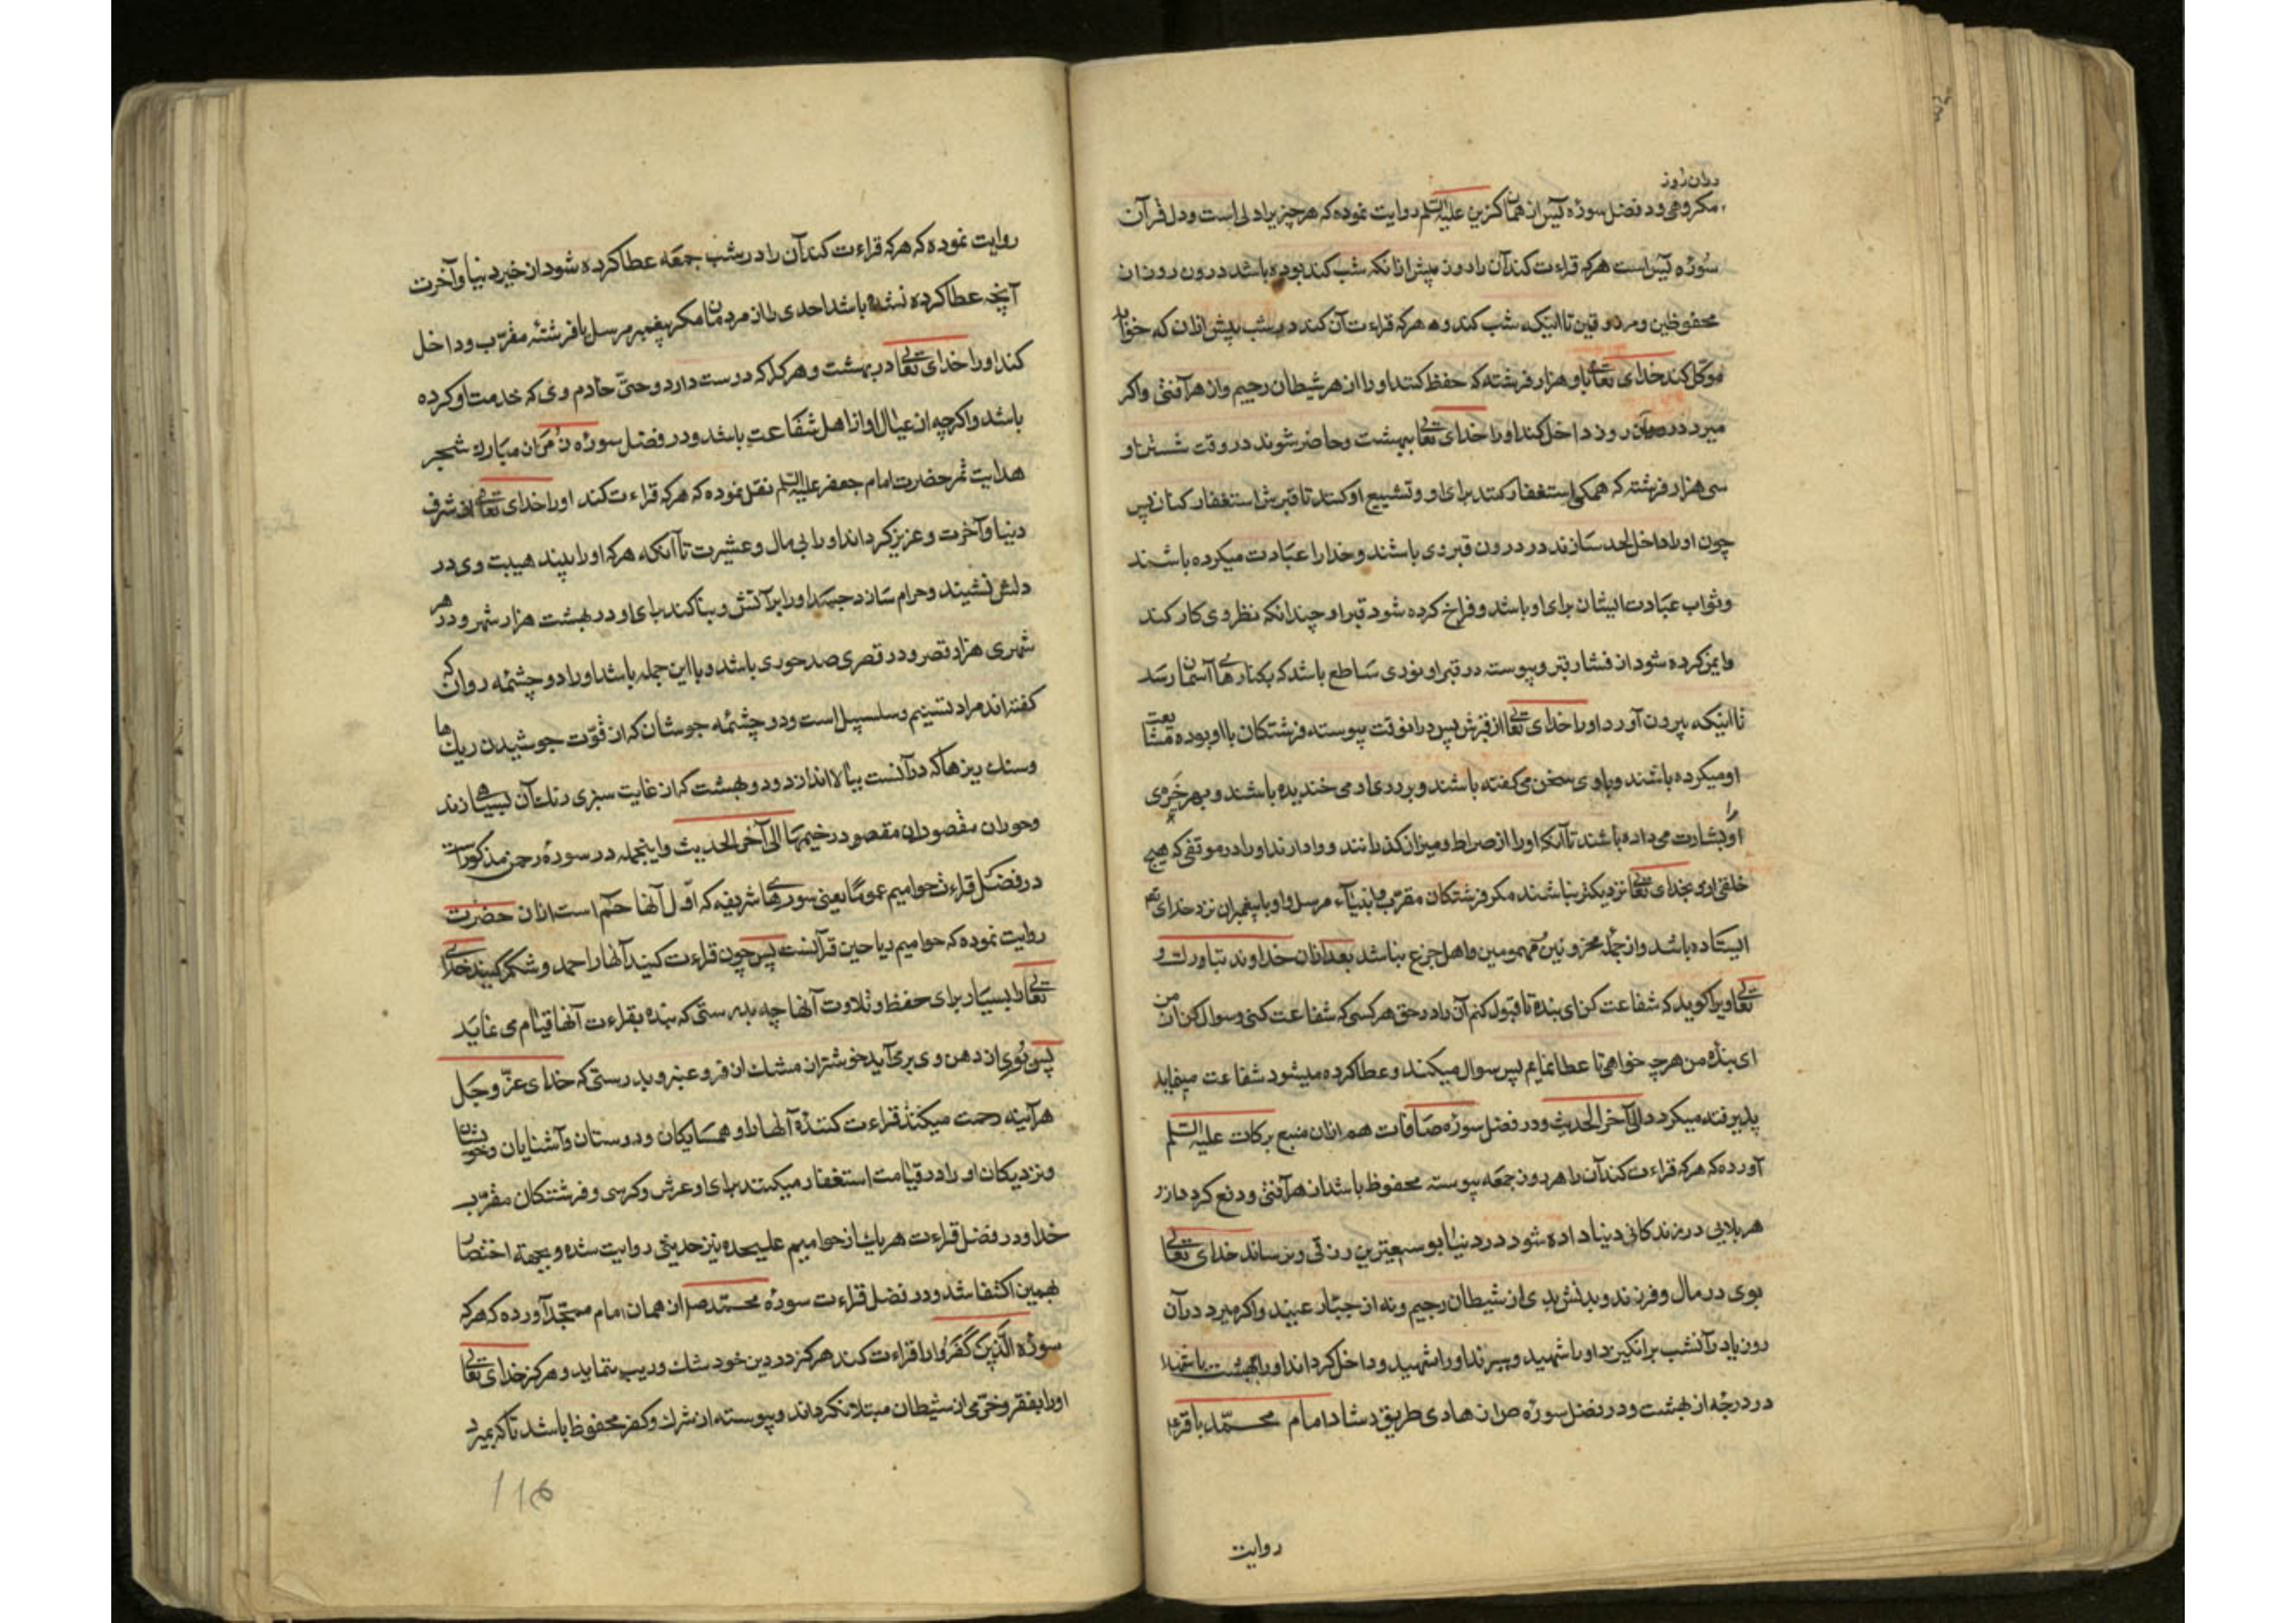 دران روز
مکروهی و در فضل سوره یس از همان کزین علیه السلم روایت نموده که هر چیز یرا دلی است و دل قرآن
سوره یس است هرکه قراءت کند آن را در روز پیش از انکه شب کند بوده باشد در ون روز از
محفوظین و مرزوقین تا اینکه شب کند و هرکه قراءت آن کند در شب پیش ازان که خوابد
موکل کند خدای تعالی باو هزار فرشته که حفظ کنند او را از هر شیطان رجیم و از هر آفتی و اکر
میرد در آن روز داخل کند او را خدای تعالی ببهشت و حاضر شوند در وقت شستن او
سی هزار فرشته که همکی استغفار کنند برای او و تشییع او کنند تا قبرش استغفار کنان پس
چون او را داخل لحد سازند در درون قبر وی باشند و خدا را عبادت میکرده باشند
و ثواب عبادت ایشان برای او باشد و فراخ کرده شود قبر او چندانکه نظر وی کار کند
و ایمن کرده شود از فشار قبر و پیوسته در قبر او نوری ساطع باشد که بکنارهای آسمان رسد
تا اینکه بیرون آورد او را خدای تعالی از قبرش پس درانوقت پیوسته فرشتکان با او بوده مشایعت
او میکرده باشند و باوی سخن می کفته باشند و برروی او می خندیده باشند و بهر خیری
او را بشارت می داده باشند تا آنکه او را از صراط و میزان کذرانند و وادارند او را در موقفی که هیچ
خلقی ازو بخدای تعالی نزدیکتر نباشند مکر فرشتکان مقرب و انبیاء مرسل و او با پیغمبران نزد خدای تعالی
ایستاده باشد و از جمله محزونین و مهمومین و اهل جزع نباشد بعد ازان خداوند تبارک و
تعالی ویرا کوید که شفاعت کن ای بنده تا قبول کنم آن را در حق هر کسی که شفاعت کنی و سوال کن از من
ای بنده من هرچه خواهی تا عطا نمایم پس سوال میکند و عطا کرده میشود شفاعت مینماید
پذیرفته میکردد الی آخر الحدیث و در فضل سوره صافات هم ازان منبع برکات علیه السلم
آورده که هرکه قراءت کند آن را هر روز جمعه پیوسته محفوظ باشد از هر آفتی و دفع کردد ازو
هر بلایی در زندکانی دنیا داده شود در دنیا بوسیعترین رزقی و نرساند خدای تعالی
بوی در مال و فرزند و بدنش بدی از شیطان رجیم و نه از جبار عنید و اکر میرد در آن
روز یا در آنشب برانکیزد او را شهید و میراند او را شهید و داخل کرداند او را بهشت با شهدا
در درجه از بهشت و در فضل سوره ص از هادی طریق رشاد امام محمد باقر ع
روایت
روایت نموده که هرکه قراءت کند آن را در شب جمعه عطا کرده شود از خیر دنیا و آخرت
آنچه عطا کرده نشده باشد احدی را از مردمان مکر پیغمبر مرسل یا فرشته مقرب و داخل
کند او را خدای تعالی در بهشت و هر کرا که دوست دارد و حتی خادم وی که خدمت او کرده
باشد و اکرچه از عیال او از اهل شفاعت باشد و در فضل سوره زمر ازان مبارک شجر
هدایت ثمر حضرت امام جعفر علیه السلم نقل نموده که هرکه قراءت کند او را خدای تعالی از شرف
دنیا و آخرت و عزیز کرداند او را بی مال و عشیرت تا آنکه هرکه او را بیند هیبت وی در
دلش نشیند و حرام سازد جسد او را بر آتش و بنا کند برای او در بهشت هزار شهر و در هر
شهری هزار قصر و در قصری صد حوری باشد و با این جمله باشد او را دو چشمه روان که
کفته اند مراد تسنیم و سلسبیل است و دو چشمه جوشان که از قوت جوشیدن ریک ها
و سنک ریزها که در آنست ببالا اندازد و دو بهشت که از غایت سبزی رنک آن بسیاهی زند
و حوران مقصوران مقصور در خیمها الی آخر الحدیث و اینجمله در سوره رحمن مذکور است
در فضل قراءت حوامیم عموما یعنی سورهای شریفه که اول آنها حم است ازان حضرت
روایت نموده که حوامیم ریاحین قرآنست پس چون قراءت کنید آنها را حمد و شکر کنید خدای
تعالی را بسیار برای حفظ و تلاوت آنها چه بدرستی که بنده بقراءت آنها قیام می نماید
پس بوی از دهن وی برمی آید خوشتر از مشک اذفر و عنبر و بدرستی که خدای عز و جل
هرآینه رحمت میکند قراءت کنندۀ آنها را و همسایکان و دوستان و آشنایان و خویشان
و نزدیکان او را در قیامت استغفار میکنند برای او عرش و کرسی و فرشتکان مقرب
خدا و در فضل قراءت هر یک از حوامیم علیحده نیز حدیثی روایت شده و بجهة اختصار
بهمین اکتفا شد و در فضل قراءت سوره محمد ص از همان امام ممجد آورده که هرکه
سوره الَّذِينَ كَفَرُوا را قراءت کند هرکز در دین خود شک و ریب ننماید و هرکز خدای تعالی
او را بفقر و خوفی از سلطان مبتلا نکرداند و پیوسته از شرک و کفر محفوظ باشد تا که بمیرد
116